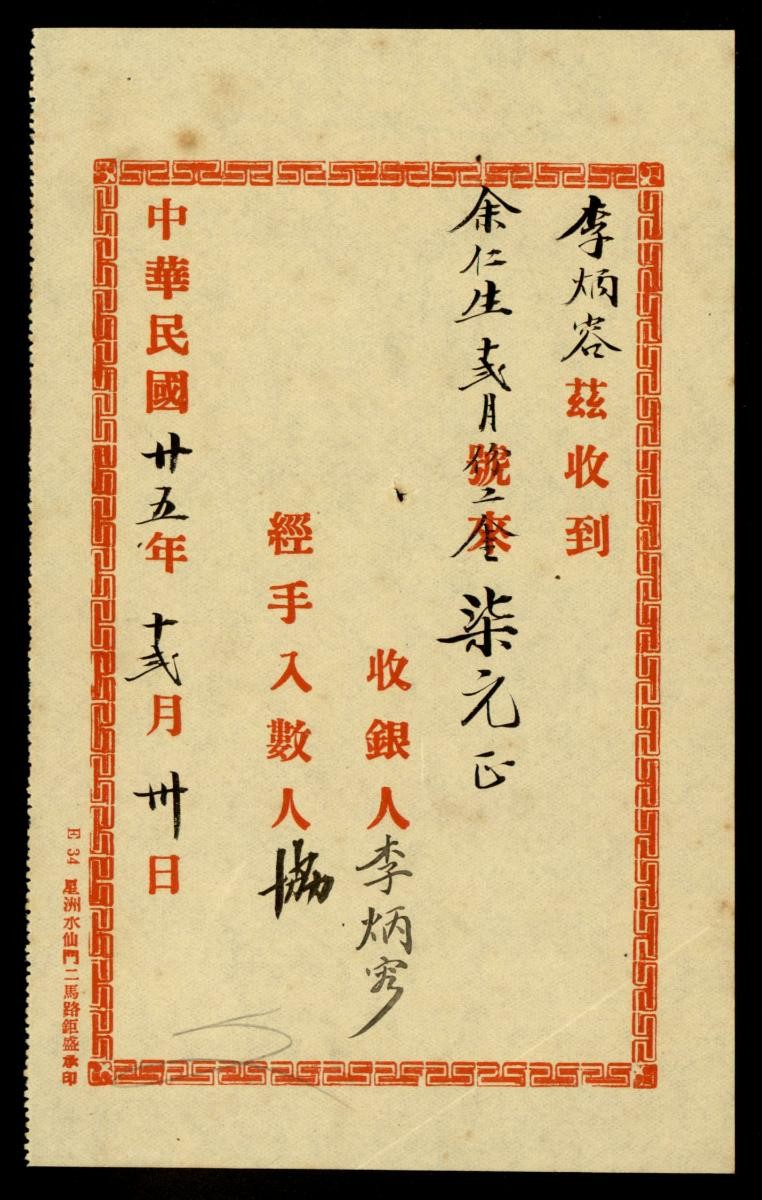 李炳容茲收到
余仁生十弍月份工金柒元正
號來
收銀人李炳容
經手入數人協
中華民國廿五年十弍月卅日
E 34 星洲水仙門二馬路鉅盛承印